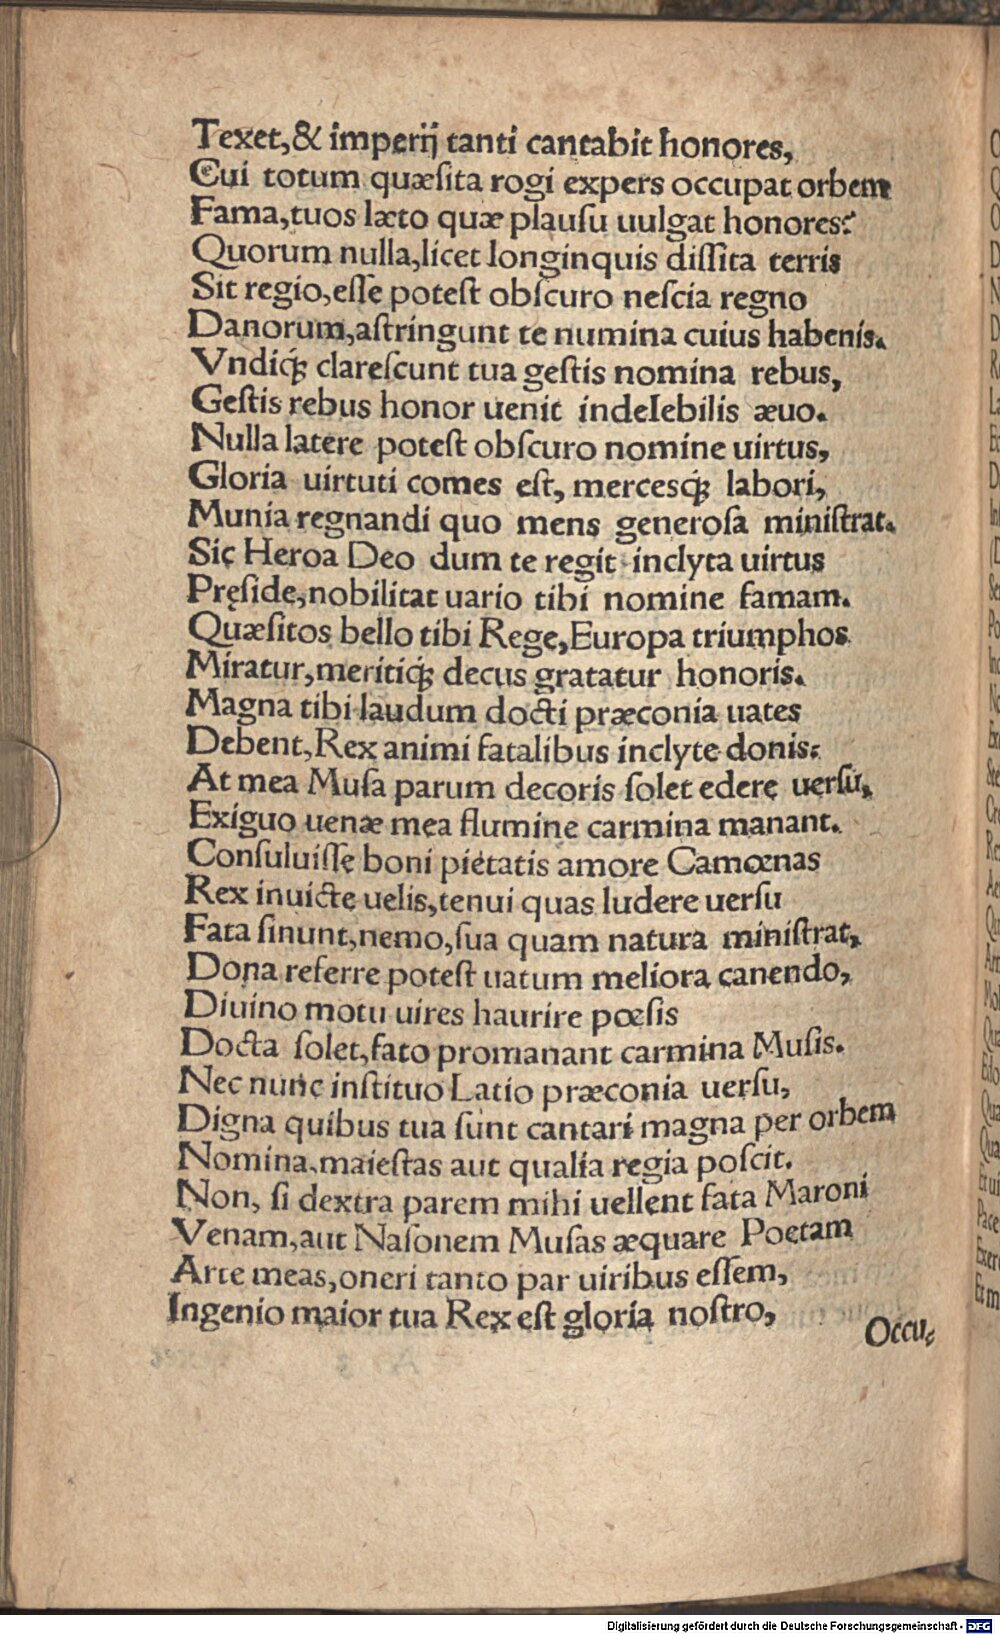 Texet,& imperij tanti cantabit honores,
Cui totum quæsita rogi expers occupat orbem
Fama,tuos læto quæ plauſu uulgat honores:
Quorum nulla,licet longinquis diſſita terris
Sit regio,eſſe poteſt obſcuro neſcia regno
Danorum,aſtringunt te numina cuius habenis.
Vndiq; clareſcunt tua geſtis nomina rebus,
Geſtis rebus honor uenit indelebilis æuo.
Nulla latere poteſt obſcuro nomine uirtus,
Gloria uirtuti comes eſt, mercesq; labori,
Munia regnandi quo mens generoſa miniſtrat.
Sic Heroa Deo dum te regit inclyta uirtus
Pręſide,nobilitat uario tibi nomine famam.
Quæſitos bello tibi Rege,Europa triumphos
Miratur,meritiq; decus gratatur honoris.
Magna tibi laudum docti præconia uates
Debent,Rex animi fatalibus inclyte donis:
At mea Muſa parum decoris ſolet edere uerſu,
Exiguo uenæ mea flumine carmina manant.
Conſuluiſſe boni pietatis amore Camœnas
Rex inuicte uelis,tenui quas ludere uerſu
Fata ſinunt,nemo,ſua quam natura miniſtrat,
Dona referre poteſt uatum meliora canendo,
Diuino motu uires haurire poeſis
Docta ſolet,fato promanant carmina Muſis.
Nec nunc inſtituo Latio præconia uerſu,
Digna quibus tua ſunt cantari magna per orbem
Nomina,maieſtas aut qualia regia poſcit.
Non, ſi dextra parem mihi uellent fata Maroni
Venam,aut Naſonem Muſas æquare Poetam
Arte meas,oneri tanto par uiribus eſſem,
Ingenio maior tua Rex eſt gloria noſtro,
Occu⸗
Digitalisierung gefördert durch die Deutsche Forschungsgemeinschaft - DFG